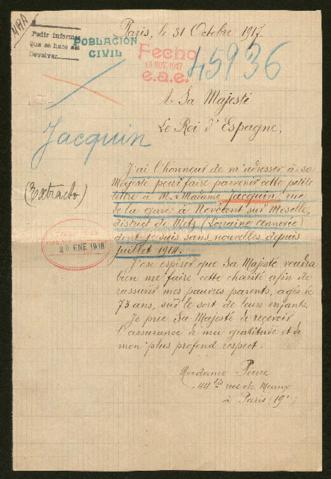 Paris, le 31 Octobre 1917.
Pedir informes
Que se hace al
Devolver
POBLACIÓN
CIVIL
Fecho
NOV. 1917
e.a.e.
45936
A Sa Majesté
Le Roi d'Espagne,
Jacquin
(Extracto)
J'ai l'honneur de m'adresser à sa
Majesté pour faire parvenir cette petite
lettre à M. & Madame Jacquin, rue
de la gare à Novéant sur Moselle,
district de Metz (Lorraine annexée)
dont je suis sans nouvelles depuis
juillet 1914.
28 ENE. 1918
J'ose espérer que Sa Majesté voudra
bien me faire cette charité afin de
rassurer mes pauvres parents, âgés de
73 ans, sur le sort de leurs enfants.
Je prie Sa Majesté de recevoir
l'assurance de ma gratitude et de
mon plus profond respect.
Madame
44 bis rue de Meaux
à Paris (19e)